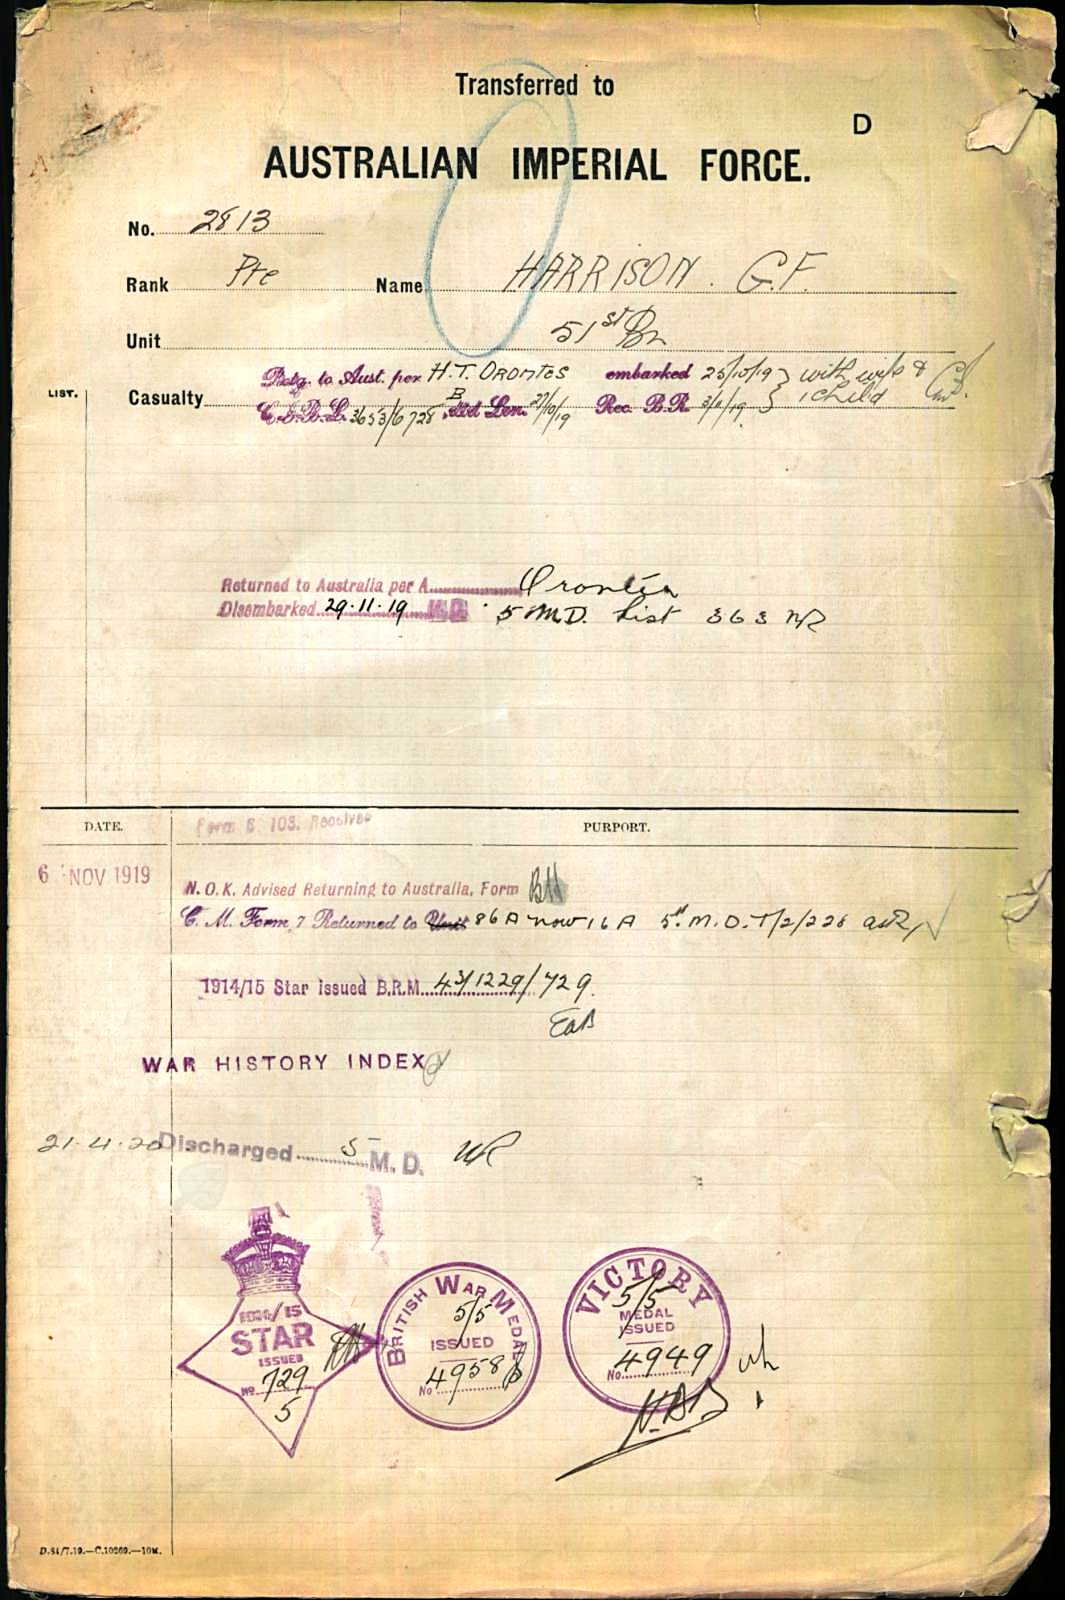 Transferred to
D
AUSTRALIAN IMPERIAL FORCE.
No. 2813
Rank Pte Name HARRISON. G.F.
Unit 51st Bn
LIST.
Casualty
Retg. to Aust. per H.T. ORONTES embarked 25/10/19 } with wife &
C.L.B.L. 3653/6728 B Lon. 27/10/19 Rec. B.R. 3/11/19 } 1 child
Returned to Australia per A. Orontes
Disembarked 29.11.19 M.D. 5 M.D. List 363
DATE. PURPORT.
Form B. 103. Received
6 NOV 1919
N.O.K. Advised Returning to Australia, Form
C. M. Form 7 Returned to Unit 86A now 16A 5th M.D. T/2/228
1914/15 Star Issued B.R.M. 43/1229/729.
EaB
WAR HISTORY INDEX
21.4.20 Discharged 5 M. D.
1914/15
STAR
ISSUED
No 729
5
BRITISH WAR MEDAL
5/5
ISSUED
No 4958
VICTORY
5/5
MEDAL
ISSUED
No. 4949
D.84/7.19.—C.10269.—10M.